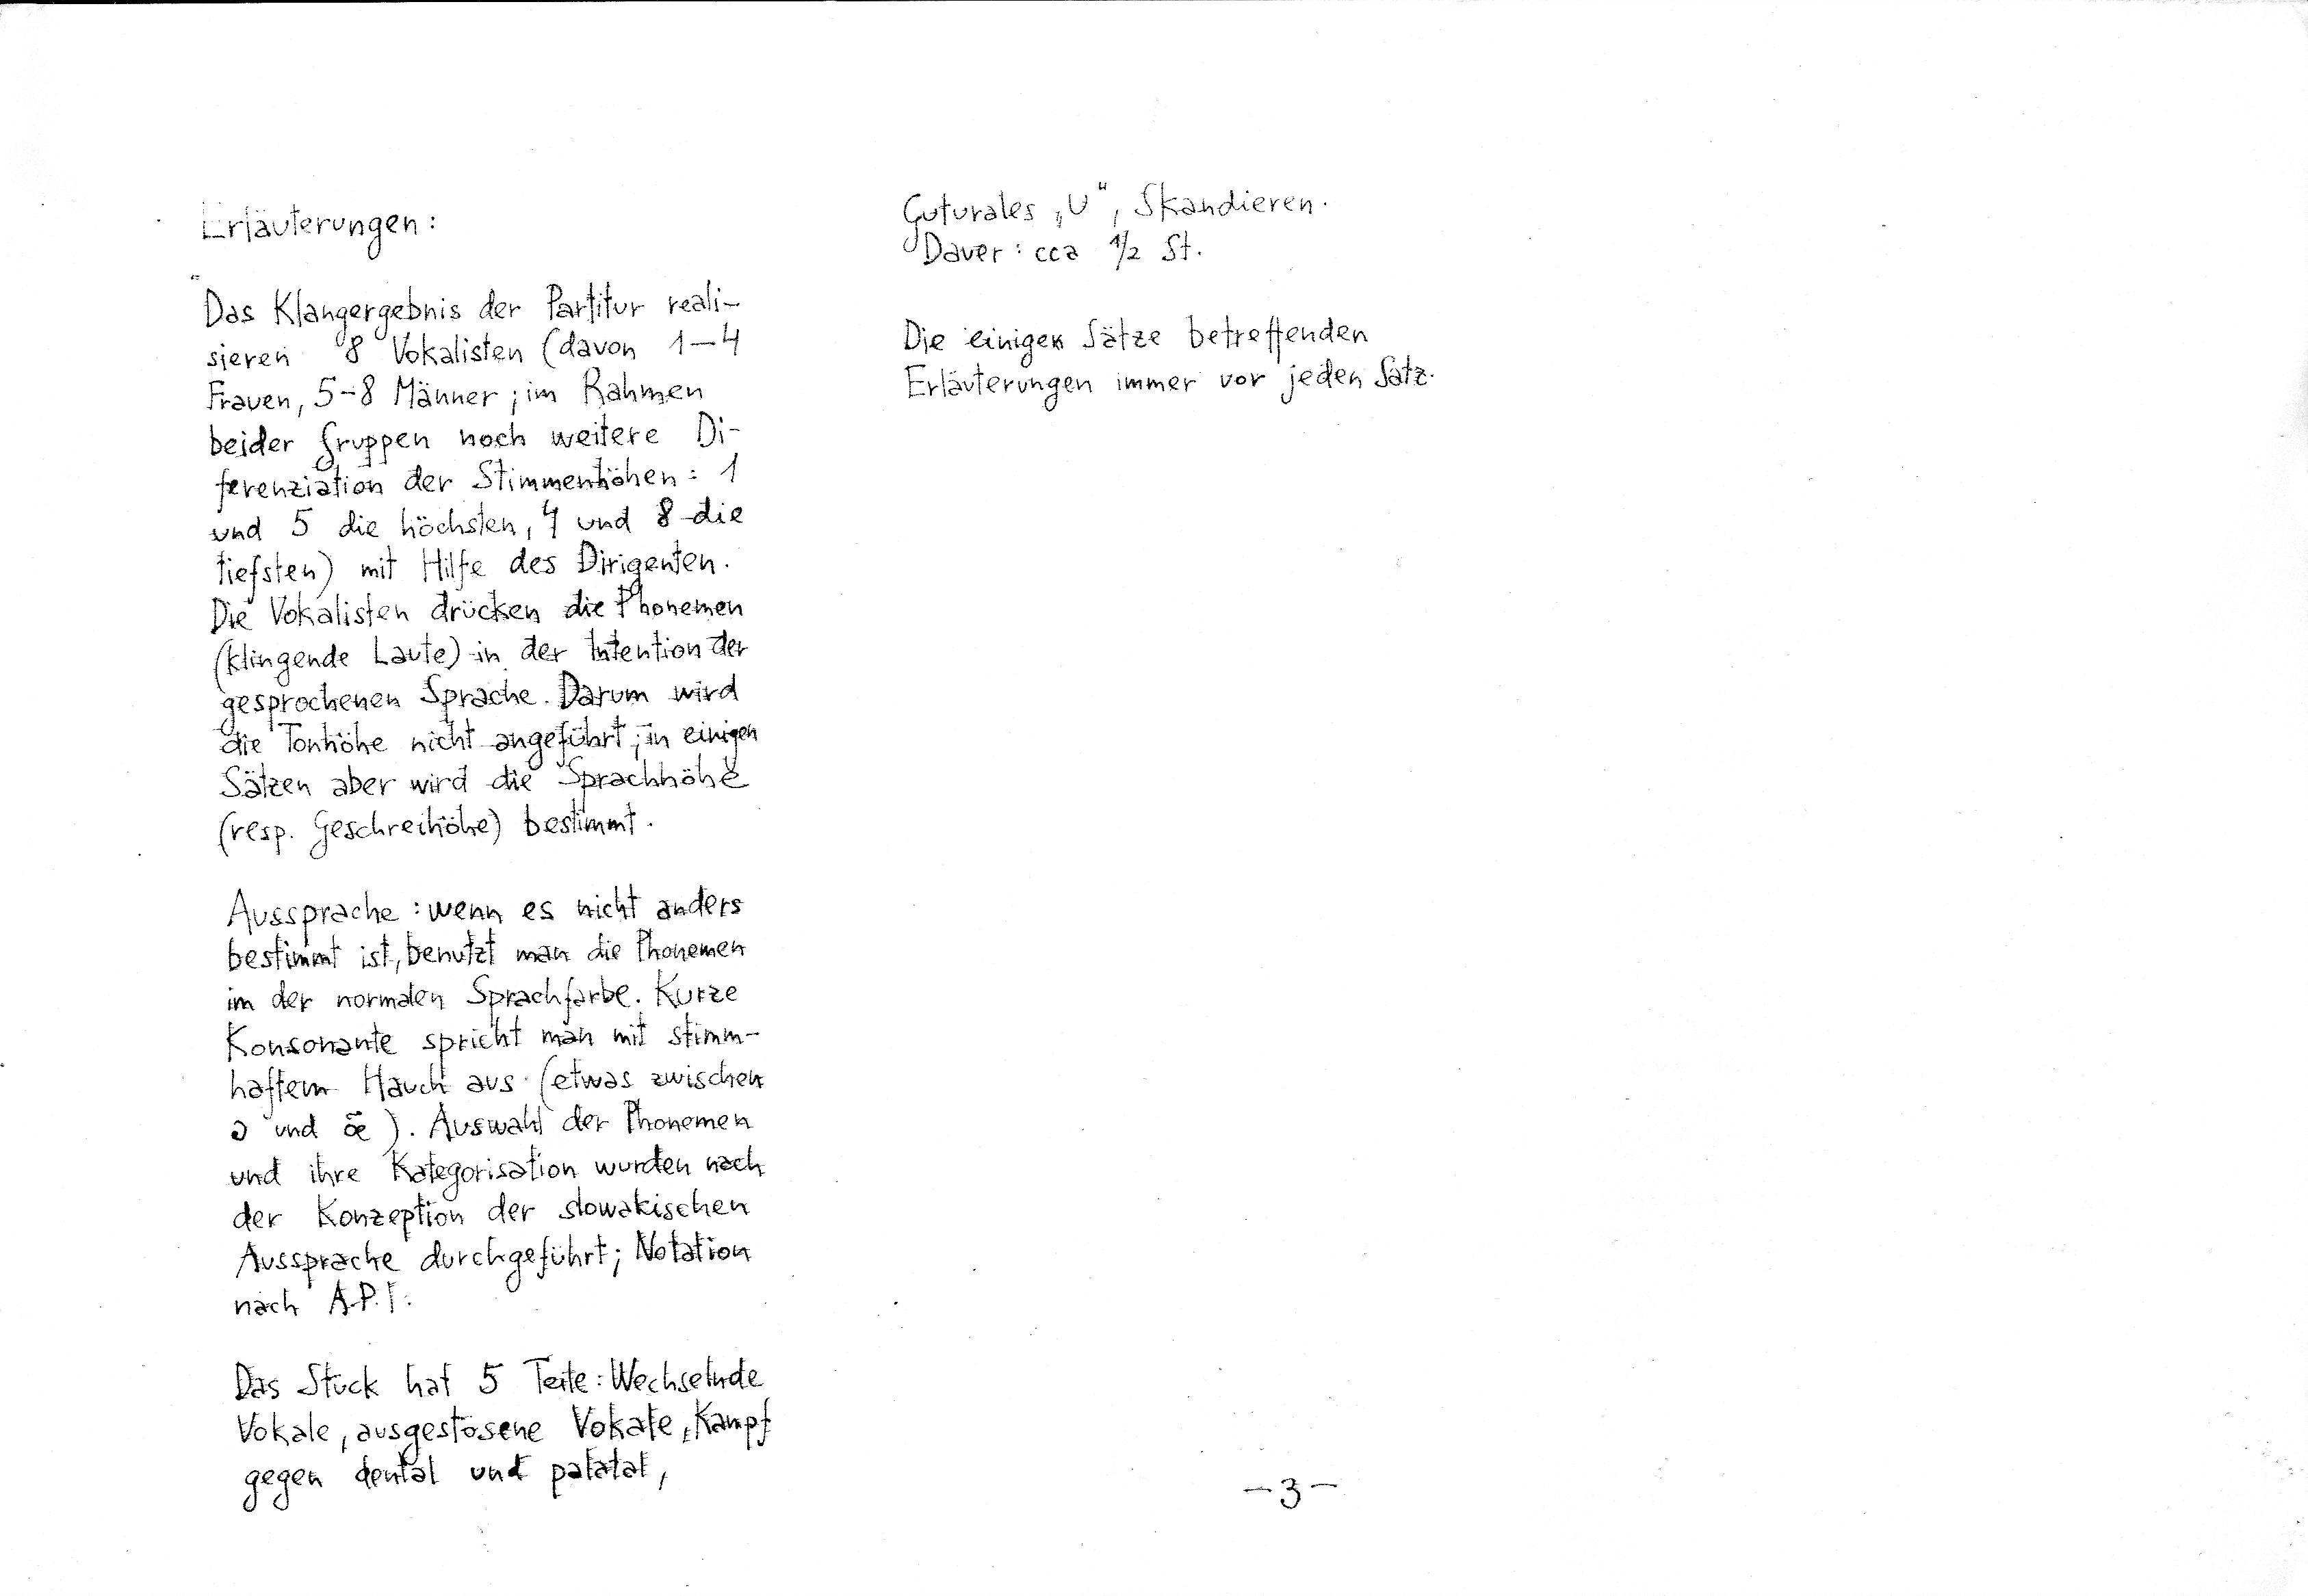 Erläuterungen:
Das Klangergebnis der Partitur reali-
sieren 8 Vokalisten (davon 1–4
Frauen, 5–8 Männer; im Rahmen
beider Gruppen noch weitere Di-
ferenziation der Stimmenhöhen: 1
und 5 die höchsten, 4 und 8 die
tiefsten) mit Hilfe des Dirigenten.
Die Vokalisten drücken die Phonemen
(klingende Laute) in der Intention der
gesprochenen Sprache. Darum wird
die Tonhöhe nicht angeführt; in einigen
Sätzen aber wird die Sprachhöhe
(resp. Geschreihöhe) bestimmt.
Aussprache: wenn es nicht anders
bestimmt ist, benutzt man die Phonemen
im der normalen Sprachfarbe. Kurze
Konsonante spricht man mit stimm-
haftem Hauch aus (etwas zwischen
ə und œ̃). Auswahl der Phonemen
und ihre Kategorisation wurden nach
der Konzeption der slowakischen
Aussprache durchgeführt; Notation
nach A.P.I.
Das Stück hat 5 Teile: Wechselnde
Vokale, ausgestosene Vokale, Kampf
gegen dental und palatal,
Guturales „U“, Skandieren.
Dauer: cca 1/2 St.
Die einigen Sätze betreffenden
Erläuterungen immer vor jeden Satz.
–3–